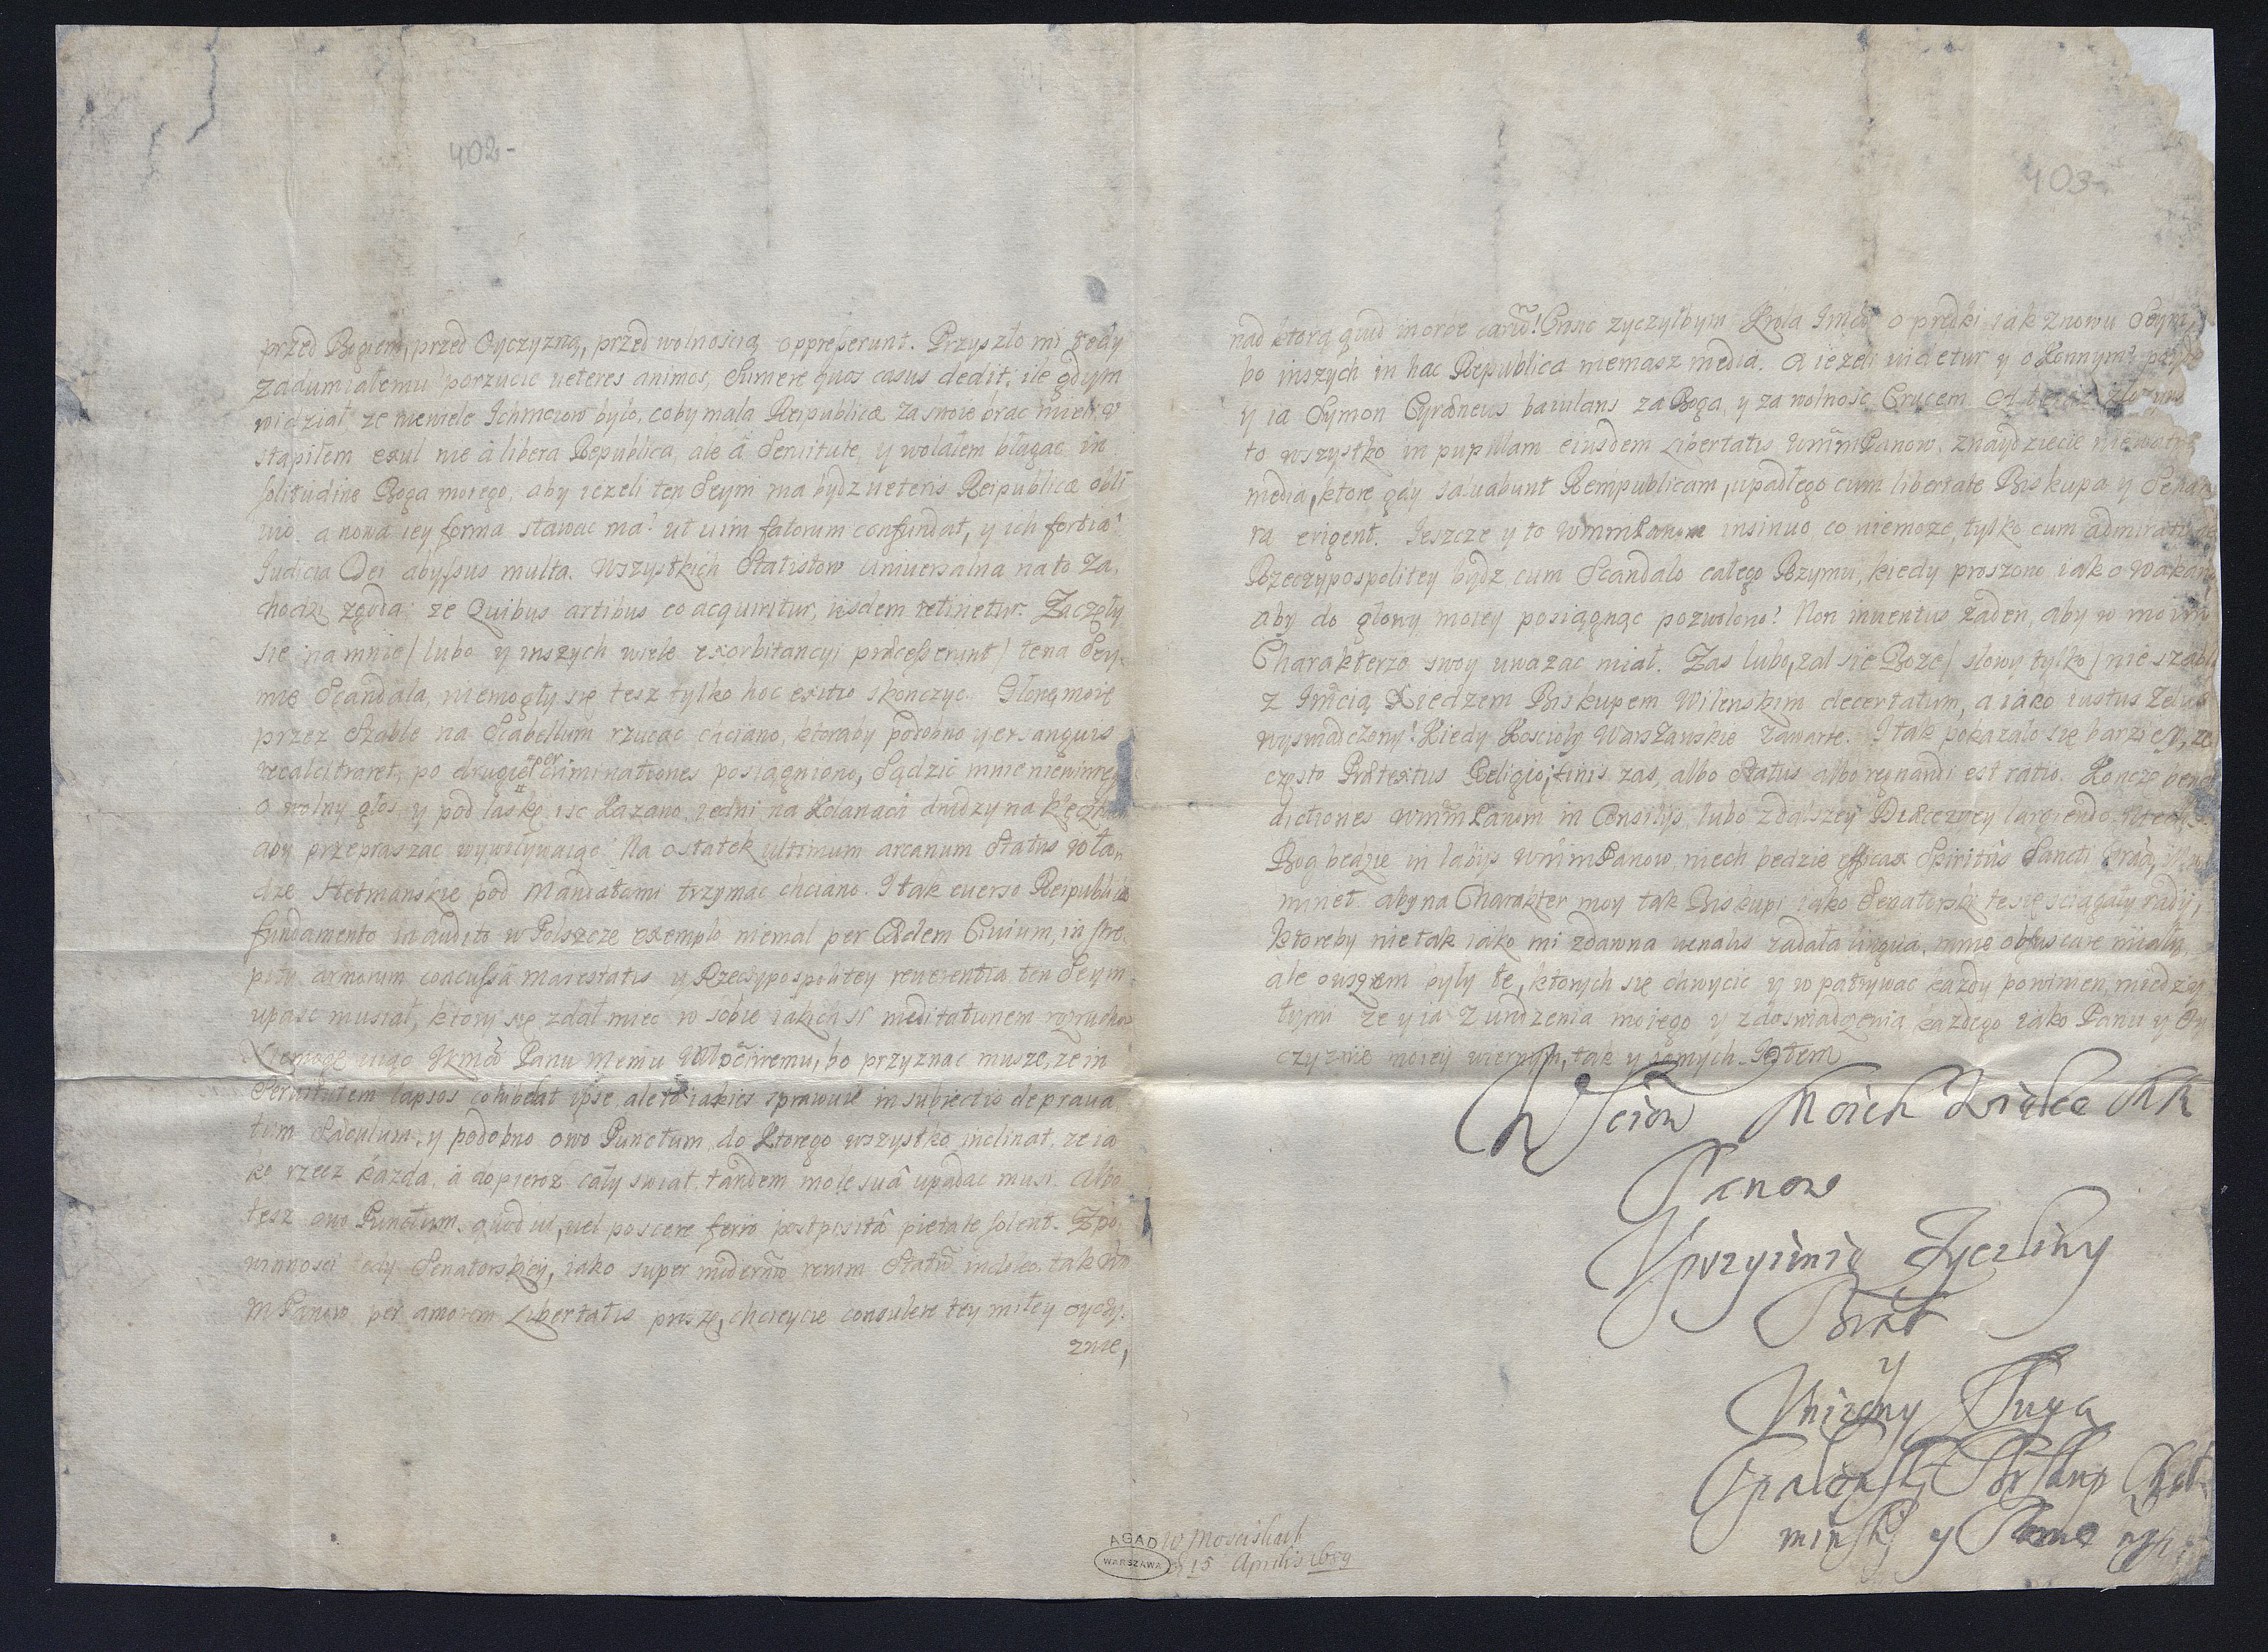 402-
przed Bogiem, przed Oyczyzną, przed wolnoscią oppresserunt. Przyszło mi tedy
zadumiałemu porzucic ueteres animos, Sumere quos casus dedit; ile gdym
widział ze niewiele Ichmciow było, coby mala Reipublicæ za swoie brac mieli
stąpiłem exul nie à libera Republica, ale à Seruitute, y wolałem błagac in
solitudine Boga moiego, aby iezeli ten Seym ma bydz ueteris Reipublicæ obli
uio, a nowa iey forma stawac ma? ut uim fatorum confundat, y ich fortia?
Iudicia Dei abyssus multa. Wszystkich Statistow uniuersalna na to za,
chodzi zgoda: ze Quibus artibus co acquiritur, iisdem retinetur. Zaczęły
się na mnie / lubo y inszych wiele exorbitancyi præcesserunt / tena Sey,
mie Scandala, niemogły się tesz tylko hoc exitio skonczyc. Głowę moię
przez Szable na Scabellum rzucac chciano, ktoraby podobno y ex sanguis
recalcitraret, po drugie per criminationes posiągniono, Sądzic mnie niewinnego
o wolny głos y pod laskę isc kazano, iedni na Kolanach drudzy na
aby przepraszac wywoływaiąc. Na ostatek ultimum arcanum Status wła,
dze Hetmanskie pod Mandatami trzymac chciano. I tak euerso Reipublicæ
fundamento inaudito w Polszcze exemplo niemal per Cædem Ciuium, in stre,
pitu armorum concussâ maiestatis y Rzeczypospolitey reuerentia ten Seym
upasc musiał, ktory się zdał miec w sobie iakichsi meditationem
Niemogę uiąc Panu Memu bo przyznac muszę, ze in
Seruitutem lapsos cohibeat ipse, ale to iakies sprawuie in subiectis depraua,
tum Sæculum, y podobno owo Punctum do ktorego wszystko inclinat, ze ia
ko rzecz kazda, à dopieroz cały swiat, tandem mole suâ upadac musi. Albo
tesz owo Punctum, quod ui, uel poscere ferro postpositâ pietate solent. Z po,
winnosci tedy Senatorskiey, iako super rerum Statu indoleo, tak Wm
M Panow per amorem Libertatis proszę, chcieycie consulere tey miłey oyczy,
znie,
403-
nad ktorą quid in orbe Ensic zyczyłbym Krola Imci o prędki iak znowu Seym,
bo inszych in hac Republica niemasz media. A iezeli uidetur y o Konnym?
y ia Symon Cyræneus baiulans za Boga, y za wolnosc Crucem.
to wszystko in pupillam eiusdem Libertatis WmmPanow, znaydziecie
media, ktore gdy saluabunt Rempublicam, upadłego cum libertate Biskupa y Senato
ra erigent. Jeszcze y to WmmPanom insinuo co niemoze, tylko cum admiratione
Rzeczypospolitey bydz cum Scandalo całego Rzymu, kiedy proszono iako
aby do głowy moiey posiągnąc pozwolono? Non inuentus zaden, aby w moim
Charakterze swoy uwazac miał. Zas lubo / zal się Boze / słowy tylko / nie szablą
z Imcią Xiedzem Biskupem Wilenskim decertatum, a iako iustus Zelus
wyswiadczony? Kiedy Koscioły Warszawskie zawarte. I tak pokazało się barziey, ze
często Prætextus Religio; finis zas, albo Status albo regnandi est ratio. Koncze bene
dictiones WmmPanom in Consilijs, lubo z dalszey Diœcezyey largiendo. Niech
Bog będzie in labijs WmmPanow, niech będzie efficax Spiritus Sancti
aby na Charakter moy tak Biskupi iako Senatorski te się sciągały rady,
ktoreby nie tak iako mi zdawna uenalis zadała lingua, mnie obfuscare miały,
ale owszem były te, ktorych się chwycic y wpatrywac kazdy powinien, miedzy
tymi ze y ia z urodzenia moiego y z doswiadczenia kazdego iako Panu y Oy
czyznie moiey wiernym, tak y samych Iestem
WSciow Moich Wielce Mh
Panow
Vprzyimie Zyczliwy
Brat
y
Vnizony Sługa
Opalenski Biskup Cheł
minski y Pome
W Mosciskach
d 15 Aprilis 1689
AGAD
WARSZAWA